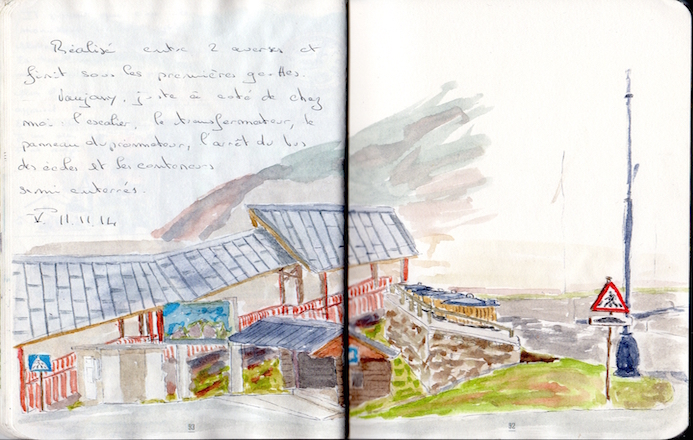 Réalisé entre 2 averses et
finit sous les premières gouttes.
Vaujany, juste à coté de chez
moi : l'escalier, le transformateur, le
panneau du promoteur, l'arrêt du bus
des écoles et les conteneurs
semi enterrés.
11.11.14
93
92